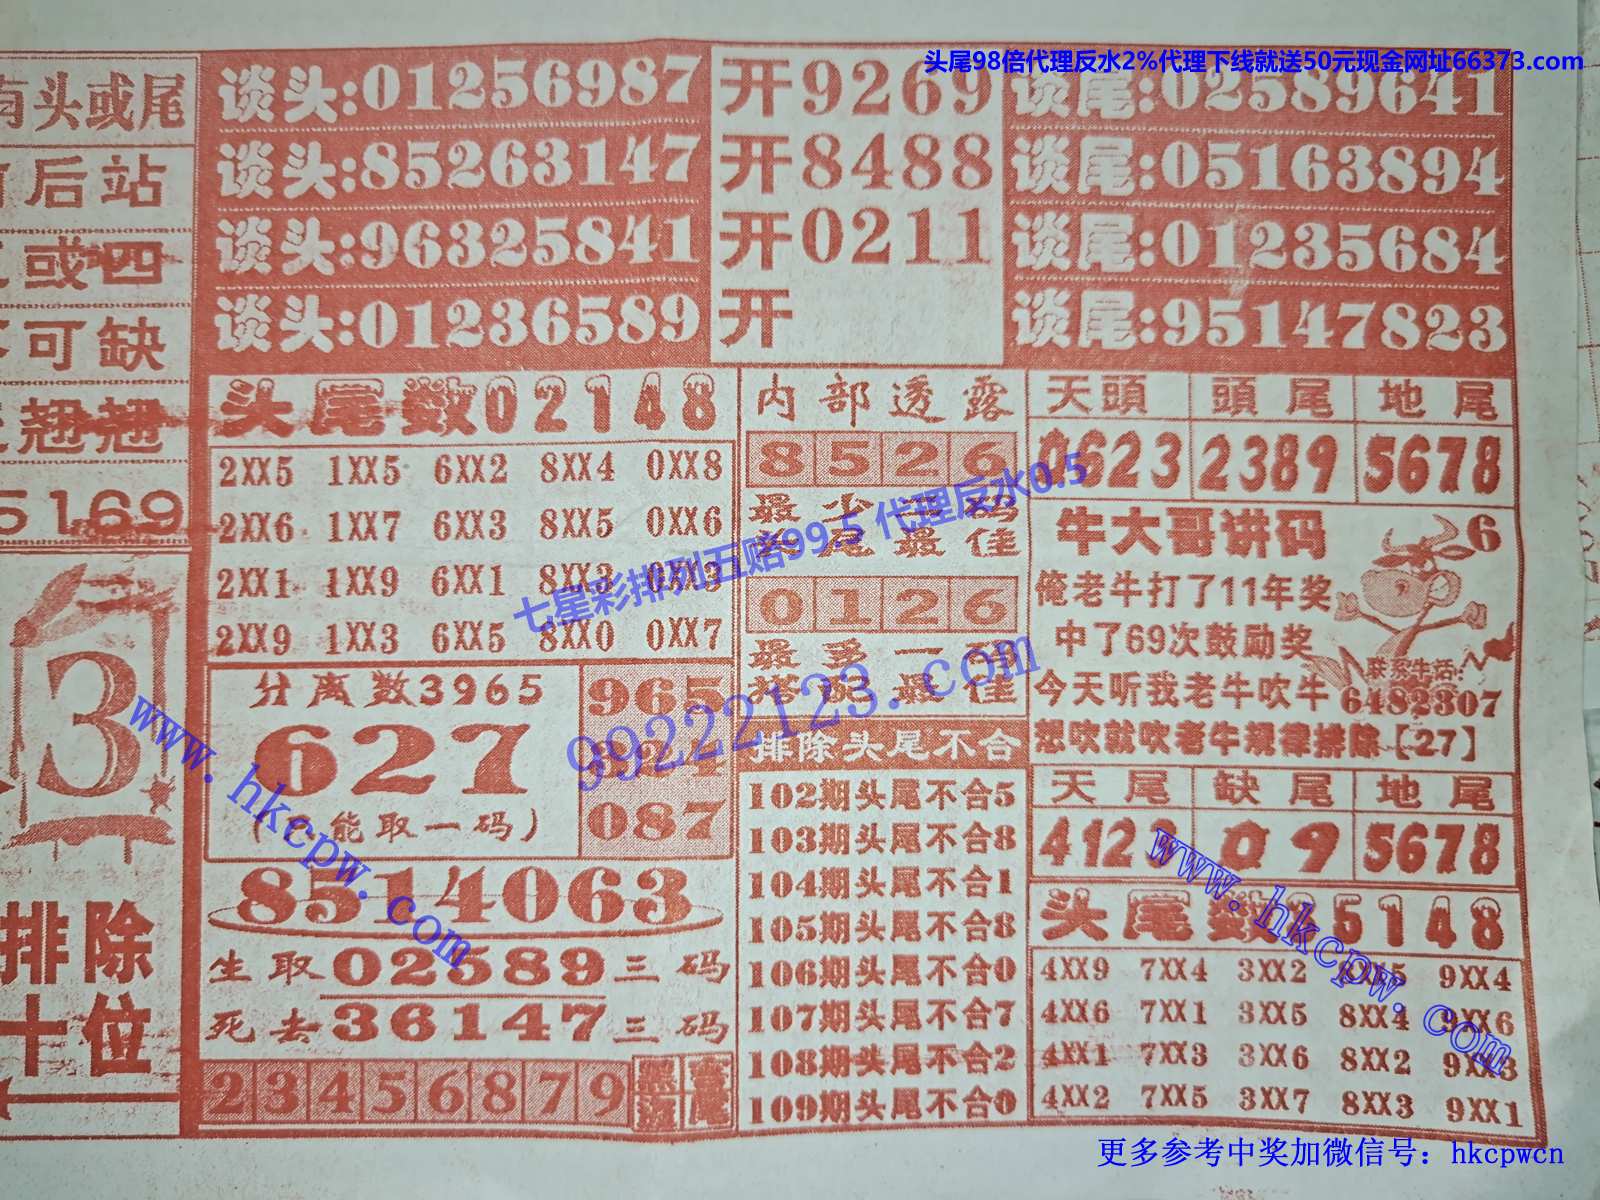 头尾98倍代理反水2%代理下线就送50元现金网址66373.com
头或尾
后站
或四
可缺
翘翘
5169
3
排除
十位
谈头:01256987 开9269 谈尾:02589641
谈头:85263147 开8488 谈尾:05163894
谈头:96325841 开0211 谈尾:01235684
谈头:01236589 开 谈尾:95147823
头尾数02148
2XX5 1XX5 6XX2 8XX4 0XX8
2XX6 1XX7 6XX3 8XX5 0XX6
2XX1 1XX9 6XX1 8XX3 0XX3
2XX9 1XX3 6XX5 8XX0 0XX7
分离数3965
627
能取一码)
965
087
8514063
生取02589三码
死去36147三码
2 3 4 5 6 8 7 9
内部透露
8 5 2 6
最少 码
尾最佳
0 1 2 6
最多一码
搭配最佳
排除头尾不合
102期头尾不合5
103期头尾不合8
104期头尾不合1
105期头尾不合8
106期头尾不合0
107期头尾不合7
108期头尾不合2
109期头尾不合0
天頭 頭尾 地尾
0623 2389 5678
牛大哥讲码 6
俺老牛打了11年奖
中了69次鼓励奖
今天听我老牛吹牛
联系生活:
6482307
想吹就吹老牛规律排除【27】
天尾 缺尾 地尾
4123 09 5678
头尾数 5148
4XX9 7XX4 3XX2 8XX5 9XX4
4XX6 7XX1 3XX5 8XX4 9XX6
4XX1 7XX3 3XX6 8XX2 9XX3
4XX2 7XX5 3XX7 8XX3 9XX1
七星彩排列五赔99.5 代理反水0.5
99222123.com
www.hkcpw.com
www.hkcpw.com
更多参考中奖加微信号：hkcpwcn